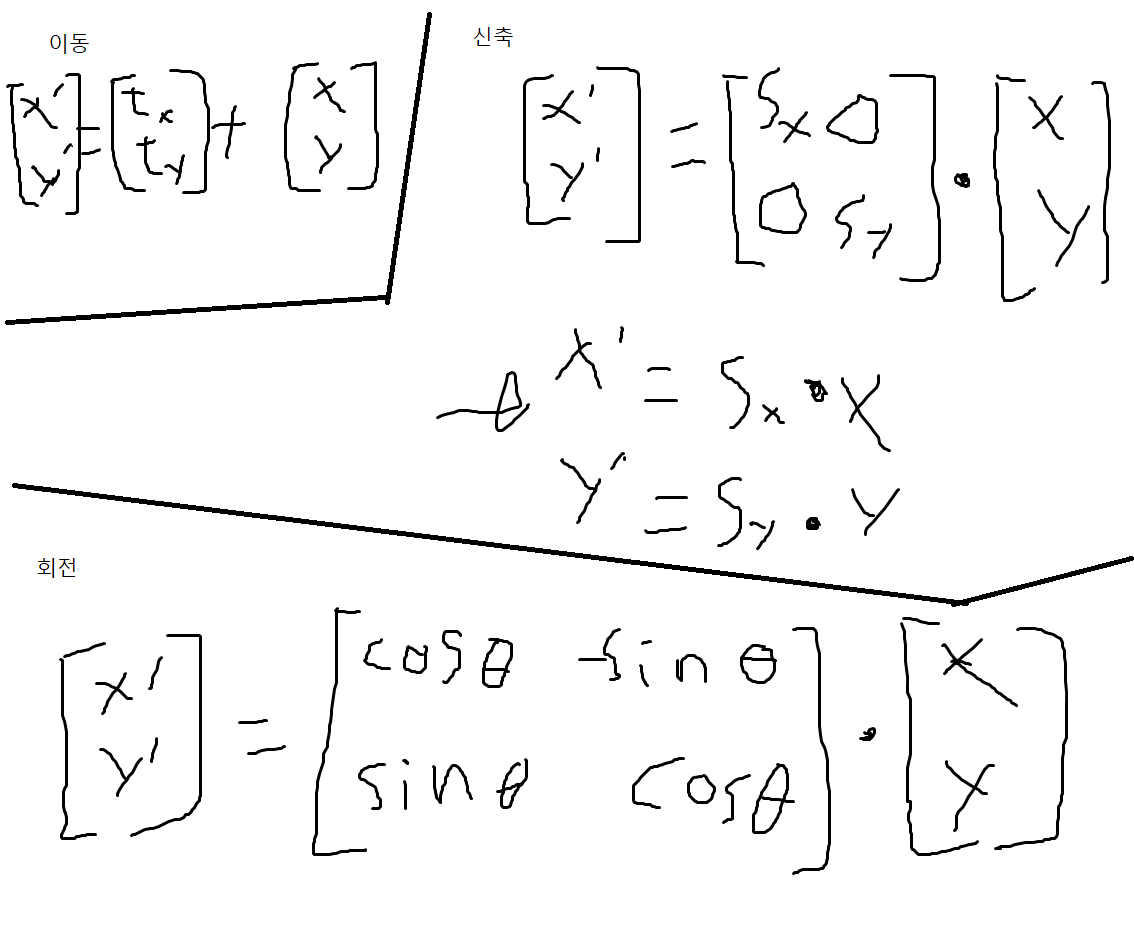 이동
[x' y'] = [tx ty] + [x y]
신축
[x' y'] = [Sx 0 0 Sy] · [x y]
→ x' = Sx · x
y' = Sy · y
회전
[x' y'] = [cosθ -sinθ sinθ cosθ] · [x y]